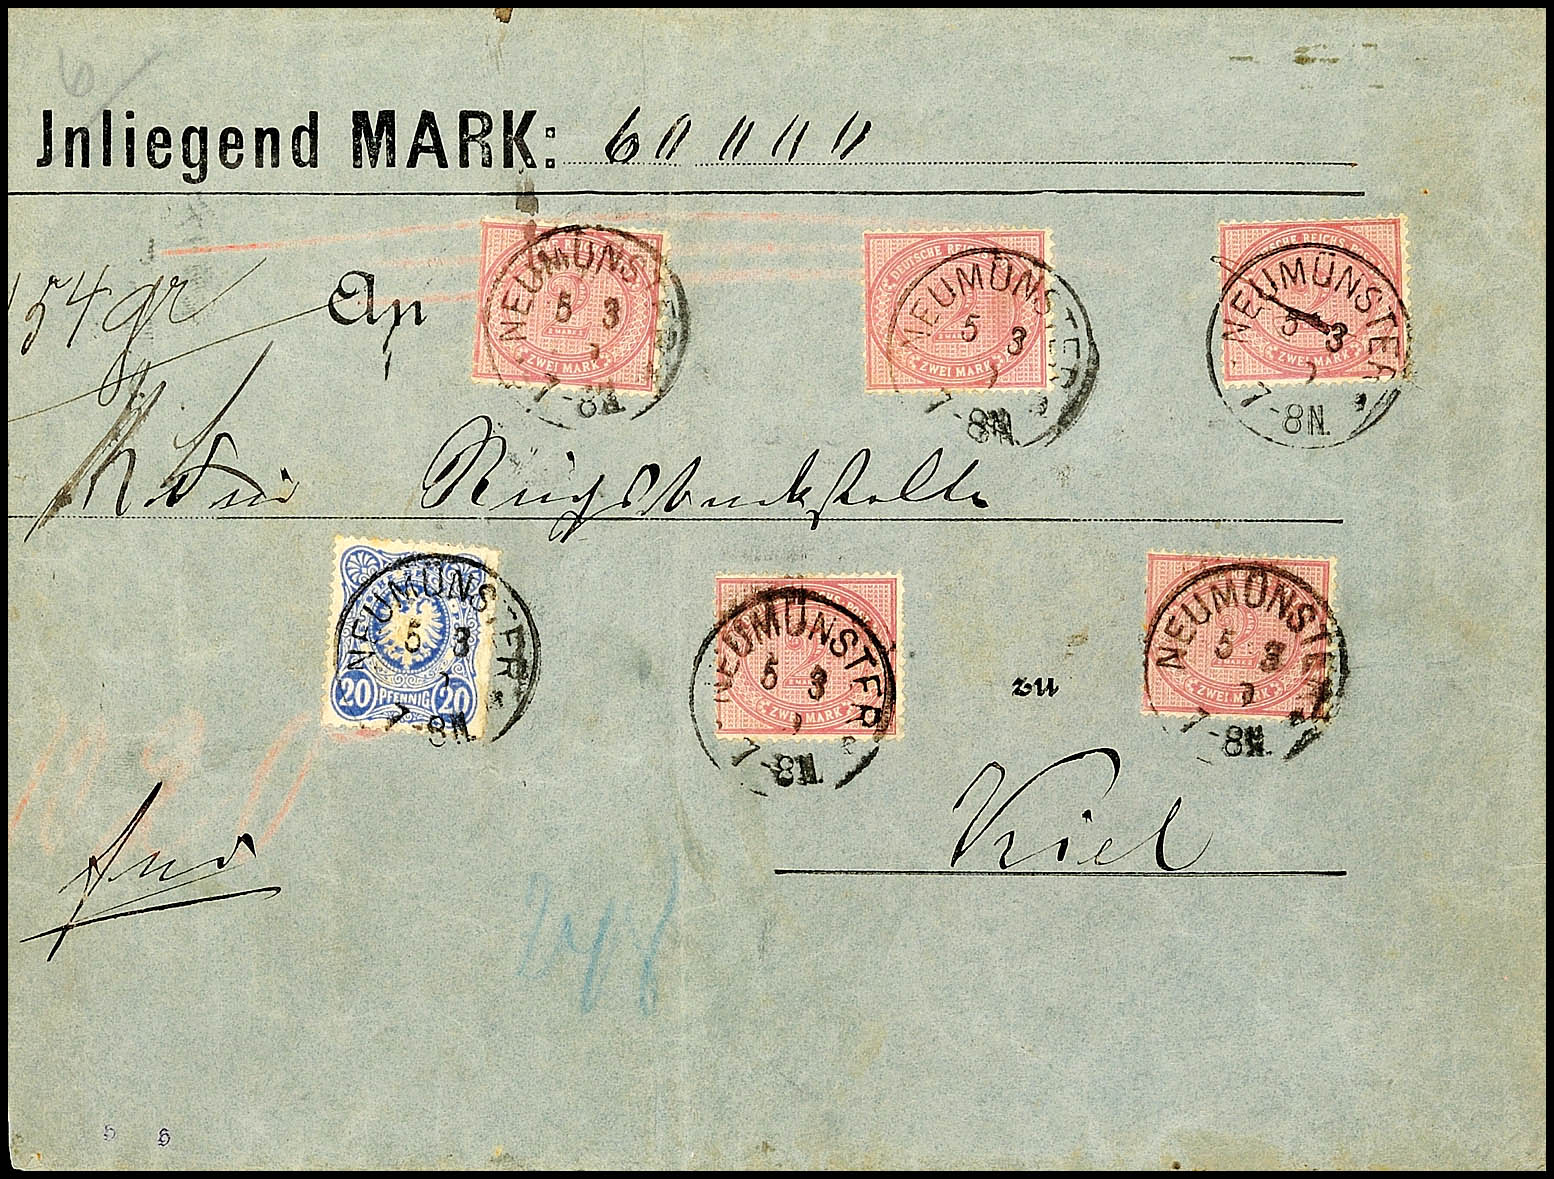 6
Jnliegend MARK: 60 000
154 gr
An
DEUTSCHE REICHS POST 2 MARK ZWEI MARK
NEUMÜNSTER 5 3 7-8N.
DEUTSCHE REICHS POST 2 MARK ZWEI MARK
NEUMÜNSTER 5 3 7-8N.
DEUTSCHE REICHS POST 2 ZWEI MARK
NEUMÜNSTER 5 3 7-8N.
Reichsbankstelle
20 PFENNIG 20
NEUMÜNSTER 5 3 7-8N.
2 ZWEI MARK
NEUMÜNSTER 5 3 7-8N.
zu
2 MARK ZWEI MARK
NEUMÜNSTER 5 3 7-8N.
Kiel
248